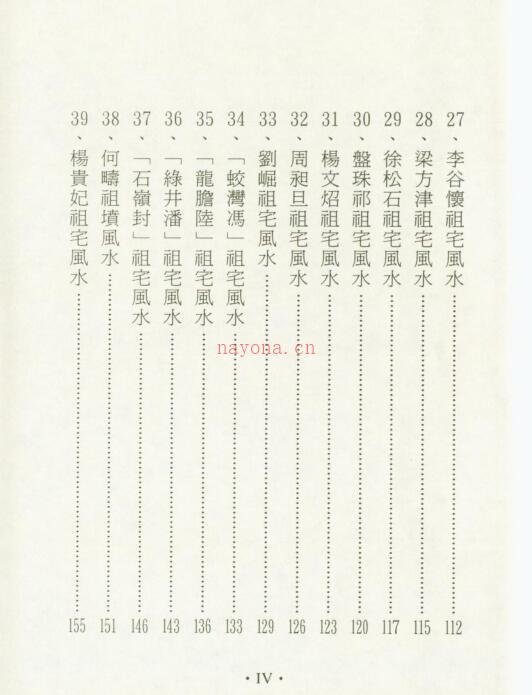 27、李谷懷祖宅風水……112
28、梁方津祖宅風水……115
29、徐松石祖宅風水……117
30、盤珠祁祖宅風水……120
31、楊文炤祖宅風水……123
32、周昶旦祖宅風水……126
33、劉崛祖宅風水……129
34、「蛟灣馮」祖宅風水……133
35、「龍膽陸」祖宅風水……136
36、「綠井潘」祖宅風水……143
37、「石嶺封」祖宅風水……146
38、何疇祖墳風水……151
39、楊貴妃祖宅風水……155
nayona.cn
·IV·